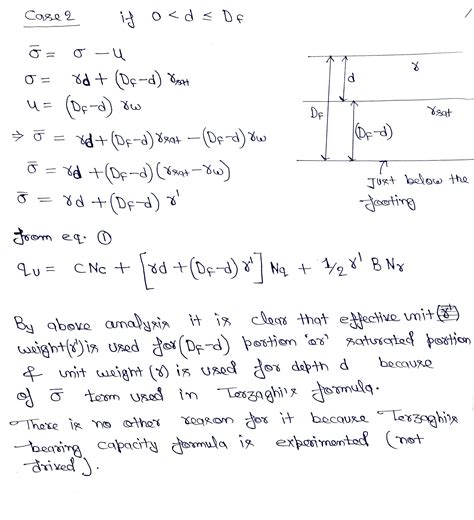 Case 2 if 0 < d ≤ D_f
σ̄ = σ - u
σ = γd + (D_f-d) γsat
u = (D_f-d) γw
⇒ σ̄ = γd + (D_f-d) γsat - (D_f-d) γw
σ̄ = γd + (D_f-d) (γsat - γw)
σ̄ = γd + (D_f-d) γ'
γ
d
D_f
γsat
(D_f-d)
Just below the
footing
from eq. ①
qu = CNc + [γd + (D_f-d) γ'] Nq + 1/2 γ' B Nγ
By above analysis it is clear that effective unit (γ')
weight(γ') is used for (D_f-d) portion 'or' saturated portion
& unit weight (γ) is used for depth d because
of σ̄ term used in Terzaghi's formula.
There is no other reason for it because Terzaghi's
bearing capacity formula is experimented (not
drived).